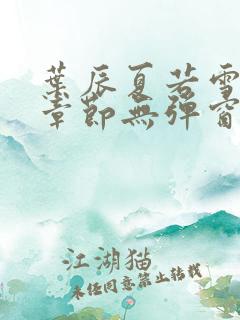 葉辰夏若雪
章節無彈窗
江湖猫
未经同意禁止转载